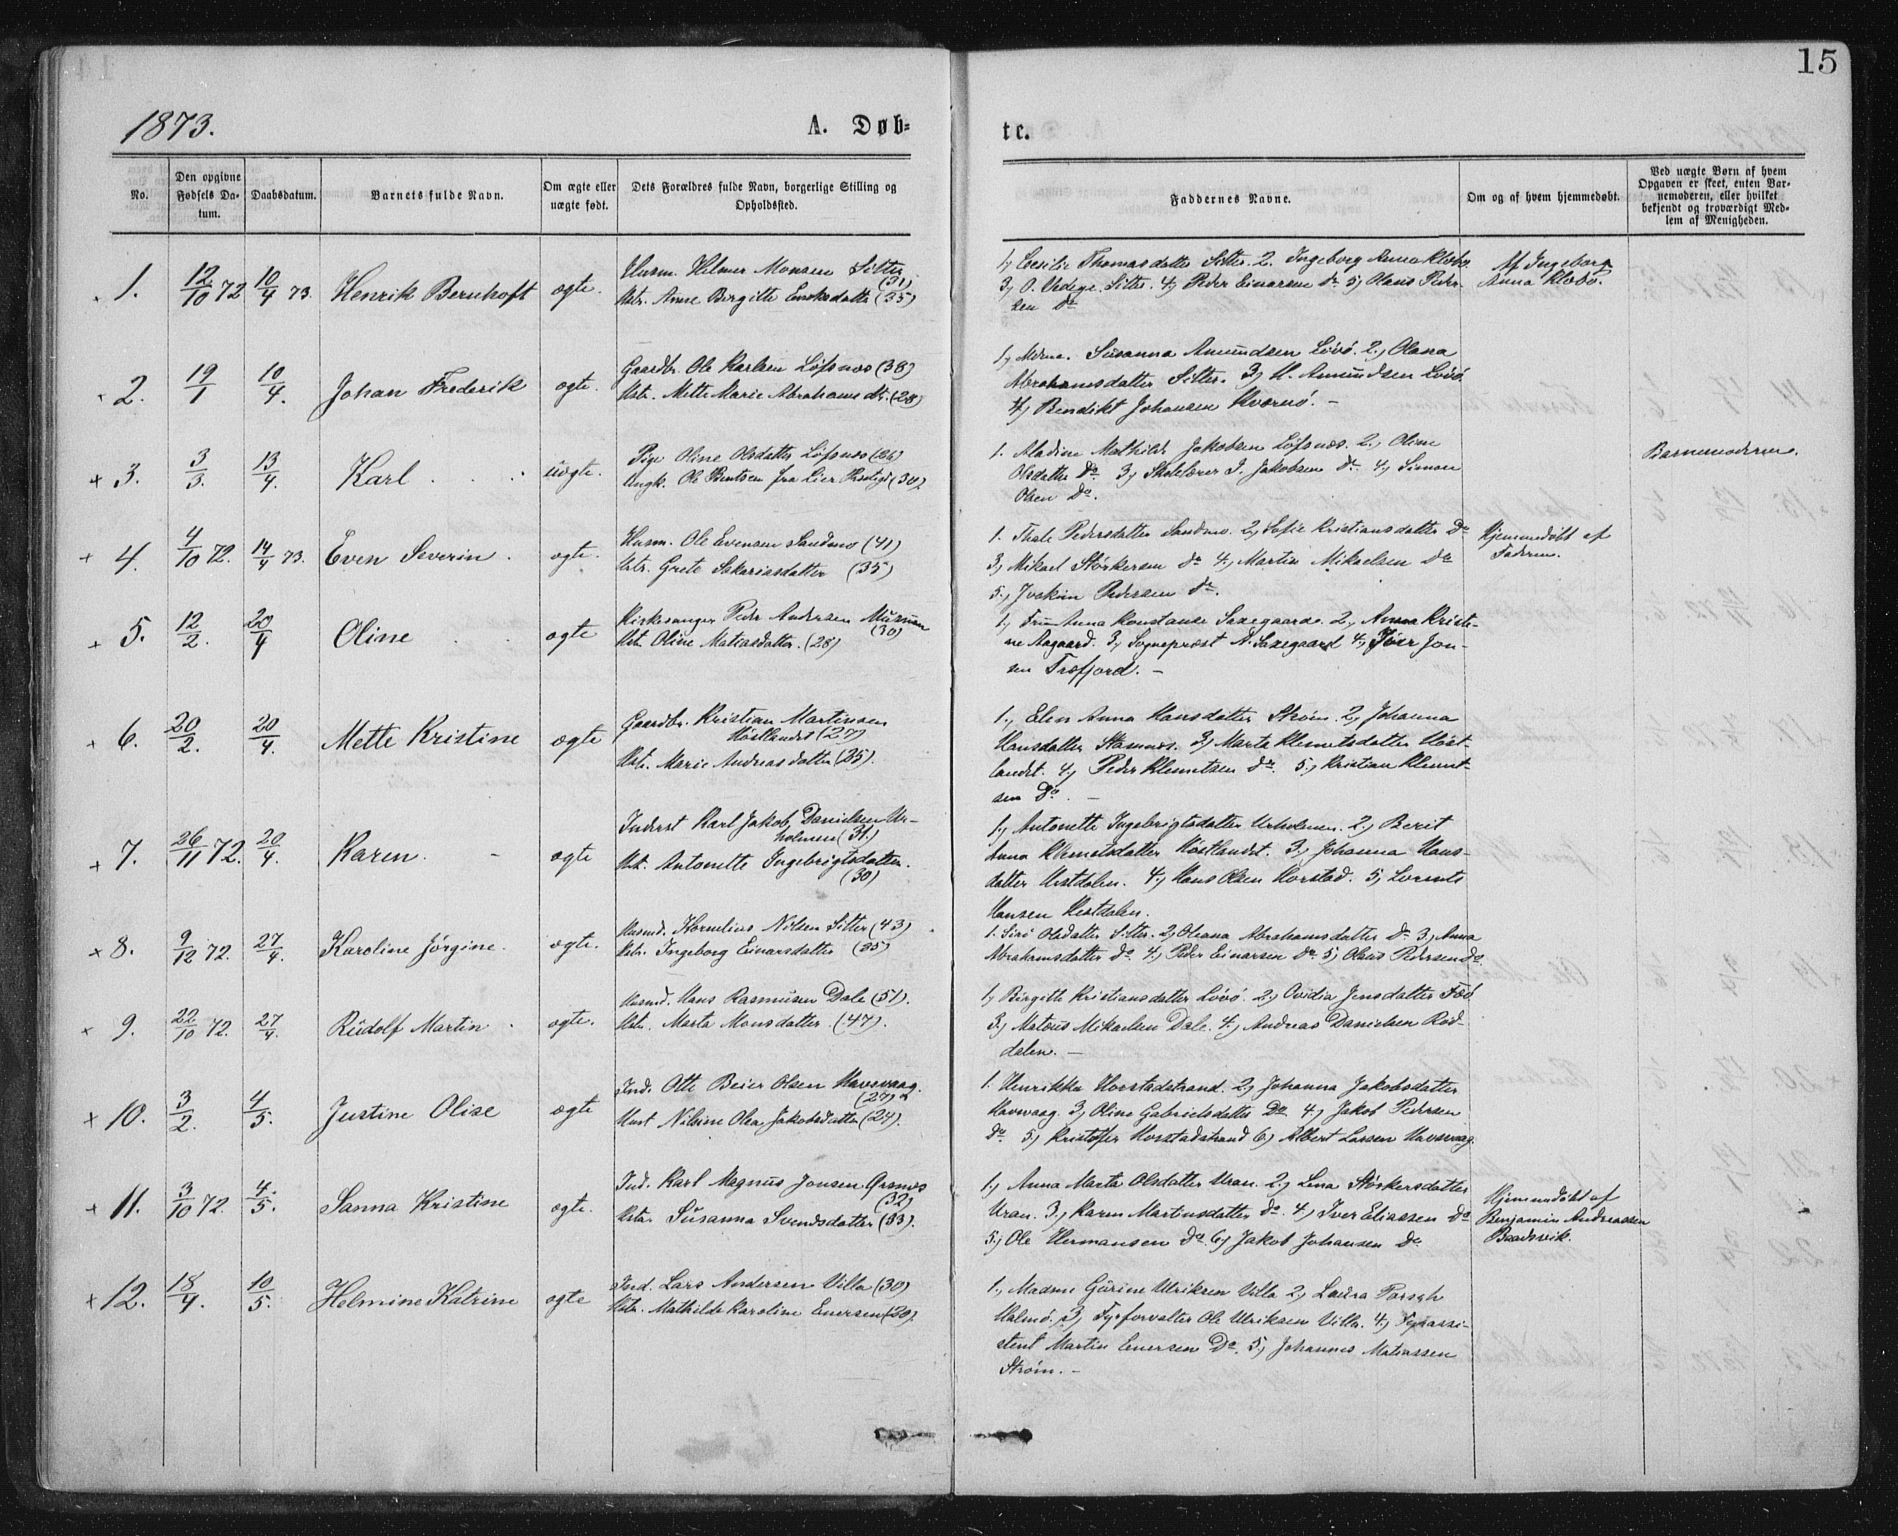 15
1873.
A. Døb=
te.
No.
Den opgivne Fødsels Da- tum.
Daabsdatum.
Barnets fulde Navn.
Om ægte eller uægte født.
Dets Forældres fulde Navn, borgerlige Stilling og Opholdssted.
Faddernes Navne.
Om og af hvem hjemmedøbt.
Ved uægte Børn af hvem Opgaven er skeet, enten Bar- nemoderen, eller hvilket bekjendt og troværdigt Med- lem af Menigheden.
1. 12/10 72 10/4 73. Henrik Bernhoft ægte. Husm. Helmer Monsen Sitter (31)
Hstr. Anne Birgitte (35)
1, Cecilie Thomasdatter Sitter. 2. Ingeborg Anna Klobø
3, O. Sitter. 4, Peder Einarsen do 5, Olaus Peder-
sen do
Af Ingeborg
Anna Klobø.
2. 19/1 10/4. Johan Frederik ægte. Gaardbr. Ole Karlsen Løfsnæs (38)
Hstr. Mette Marie Abrahams dtr. (28)
1, Susanna Amundsen Lövö. 2, Olana
Abrahamsdatter Sitter. 3, Amundsen Lövö.
4, Bendikt Johansen Kværnö. –
+ 3. 3/3. 13/4. Karl uægte. Pige Oline Olsdatter Løfsnæs (26)
Ungk. Ole Bentsen fra Lier (30)
1. Mathilde Jakobsen Løfsnæs. 2, Oline
Olsdatter do 3, Skolelærer J. Jakobsen do 4, Simon
Olsen do.
Barnemoderen.
+ 4. 4/10 72. 14/4 73. Even Severin ægte. Husm. Ole Evensen Sandmo (41)
Hstr. Grete Sakariasdatter (35)
1. Thale Pedersdatter Sandmo. 2, Sofie Kristiansdatter do
3, Mikael Störkersen do 4, Martin Mikaelsen do
5, Joakim Pedersen do.
Hjemmedöbt af
Faderen.
+ 5. 12/2. 20/4 Oline ægte Kirkesanger Peder Andersen
(30)
Hstr. Oline Matiasdatter. (28)
1, Fru Anna Konstanse Saxegaard. 2, Anna Kristi-
ne Aagaard. 3, Sogneprest A. Saxegaard 4, Iver Jon-
sen Træfjord. –
6. 20/2. 20/4. Mette Kristine ægte Gaardbr. Kristian Martinsen
Høstlandet (27)
Hstr. Marie Andreasdatter (25).
1, Elen Anna Hansdatter Ström. 2, Johanna
Hansdatter Stamnes. 3, Marta Klemetsdatter Høst-
landet. 4, Peder Klemetsen do 5, Kristian Klemet-
sen do. –
+ 7. 26/11 72. 20/4. Karen. – ægte Inderst Karl Jakob Danielsen Ur-
holmen (31.)
Hstr. Antonette Ingebrigtsdatter.
(30)
1, Antonette Ingebrigtsdatter Urholmen. 2, Berit
Anna Klemetsdatter Høstlandet. 3, Johanna Hans-
datter Hestdalen. 4, Hans Olsen Horstad. 5, Lorents
Hansen Hestdalen.
× 8. 9/12 72. 27/4. Karoline Jörgine. ægte. Husmd. Kornelius Nilsen Sitter (43)
Hstr. Ingeborg Einarsdatter (35)
1. Olsdatter Sitter. 2, Oleana Abrahamsdatter do 3, Anna
Abrahamsdatter do. 4, Peder Einarsen do. 5, Olaus Pedersen do
× 9. 22/10 72. 27/4. Rudolf Martin ægte. Husmd. Hans Rasmussen Dale (51).
Hstr. Marta Monsdatter. (47).
1, Birgith Kristiansdatter Lövö. 2, Ovidia Jensdatter
3, Mikaelsen Dale. 4, Andreas Danielsen Röd-
dalen. –
× 10. 3/2. 4/5. Justine Olise ægte Ind. Otto Beier Olsen Havsvaag.
(27)
Hust Nilsine Olea Jakobsdatter (24).
1. Henrikke Horstadstrand. 2, Johanna Jakobsdatter
Havsvaag. 3, Oline Gabrielsdatter do 4, Jakob Pedersen
do. 5, Kristoffer Horstadstrand 6, Albert Larsen Havsvaag.
11. 3/10 72. 4/5. Sanna Kristine ægte. Ind. Karl Magnus Jonsen
(32)
Hstr. Susanna Svendsdatter (33).
1, Anna Marta Olsdatter Uran. 2, Lena Störkersdatter
Uran. 3, Karen Martinsdatter do. 4, Iver Eliassen do
5, Ole Hermansen do. 6, Jakob Johansen do
Hjemmedöbt af
Benjamin Andreassen
Baadsvik.
× 12. 18/4. 10/5. Helmine Katrine ægte Ind. Lars Andersen Villa (30)
Hstr. Mathilde Karoline Enersen (20).
1, Madme Gurine Ulriksen Villa 2, Laura
Malmö. 3, Fyrforvalter Ole Ulriksen Villa. 4, Fyrassi-
stent Martin Enersen do. 5, Johannes Matiassen
Ström. –